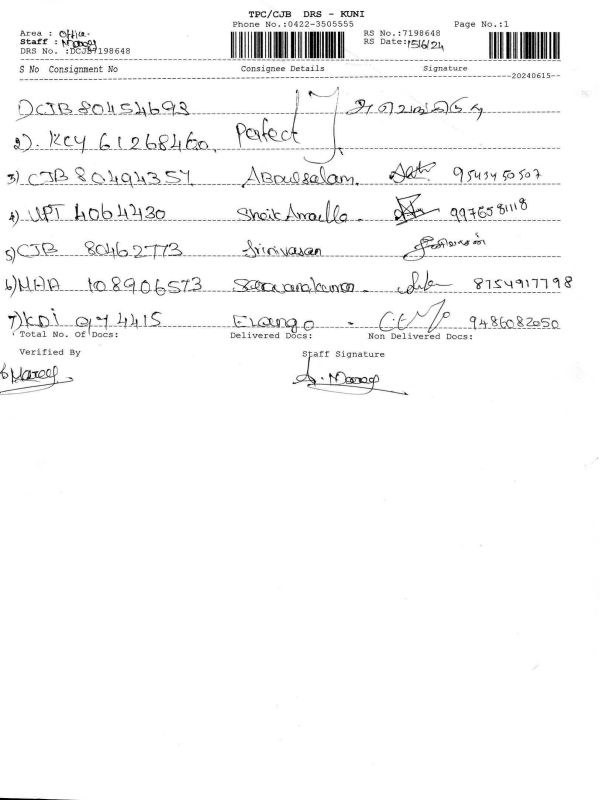 TPC/CJB DRS - KUNI
Phone No.:0422-3505555 Page No.:1
Area : Office.
Staff : Marey
DRS No. :DCJB7198648
RS No.:7198648
RS Date:15/6/24
S No Consignment No Consignee Details Signature
--20240615--
1) CJB 80454693
2). KCY 61268460. Perfect
3) CJB 80494357 Abdulsalam. 9543450507
4) UPT 4064430 9976581118
5) CJB 80462773 Srinivasan சீனிவாசன்
6) MHA 108906573 Saravanakumar - 8754917798
7) KDI 974415 Elango - 9486082050
Total No. Of Docs: Delivered Docs: Non Delivered Docs:
Verified By Staff Signature
Marey A. Marey